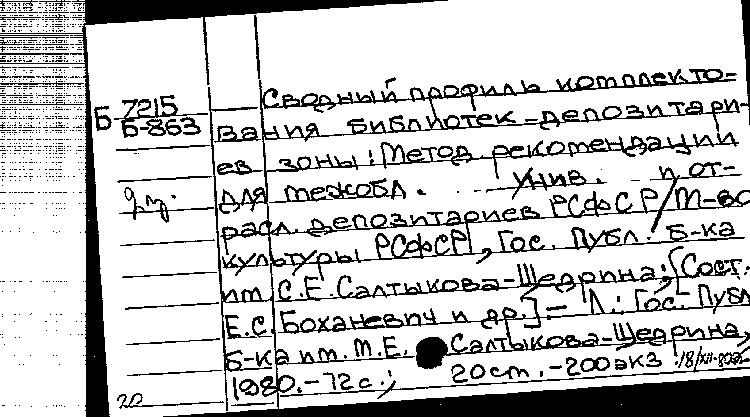 Б 7215
Б-863
Сводный профиль комплекто-
вания библиотек-депозитари-
ев зоны: Метод рекомендации
для межобл. универ. и от-
расл. депозитариев РСФСР/М-во
культуры РСФСР, Гос. Публ. Б-ка
им. С.Е. Салтыкова-Щедрина; [Сост.
Е.С. Боханевич и др.].— Л.: Гос. Публ
Б-ка им. М.Е. Салтыкова-Щедрина,
1980.-72 с.; 20 см.-200 экз.
20